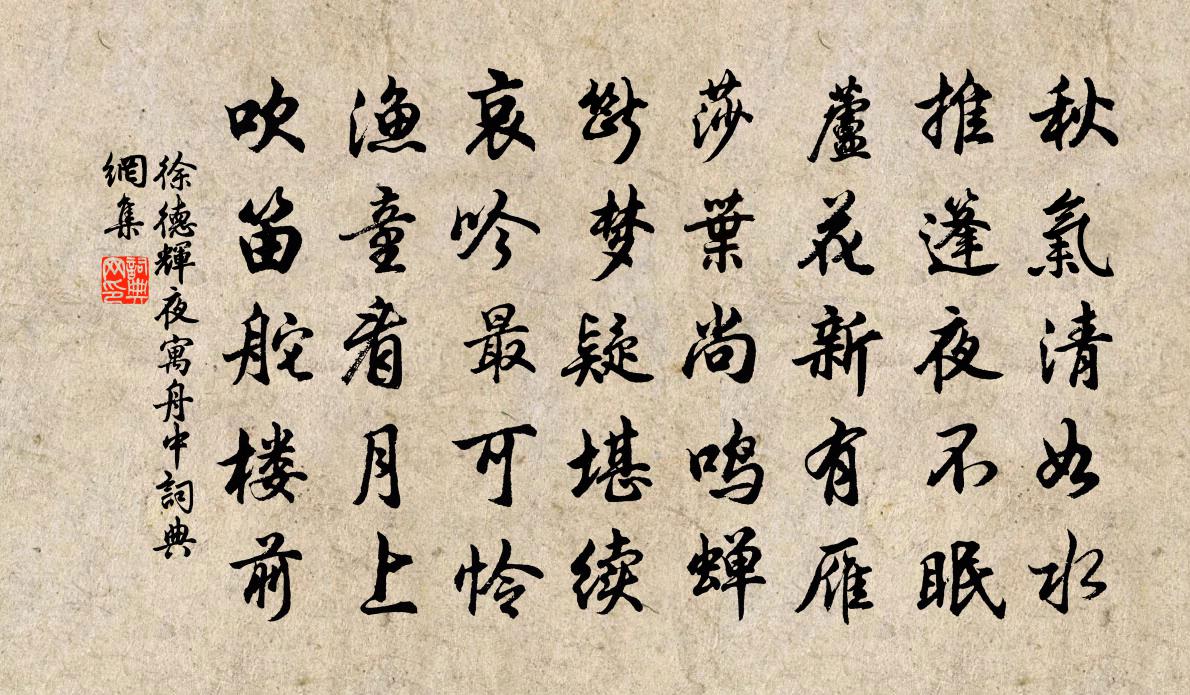 秋氣清如水
推蓬夜不眠
蘆花新有雁
莎葉尚鸣蝉
斷梦疑堪续
哀吟最可怜
渔童看月上
吹笛舵楼前
徐德輝夜寓舟中詞典
網集
詞典
网印